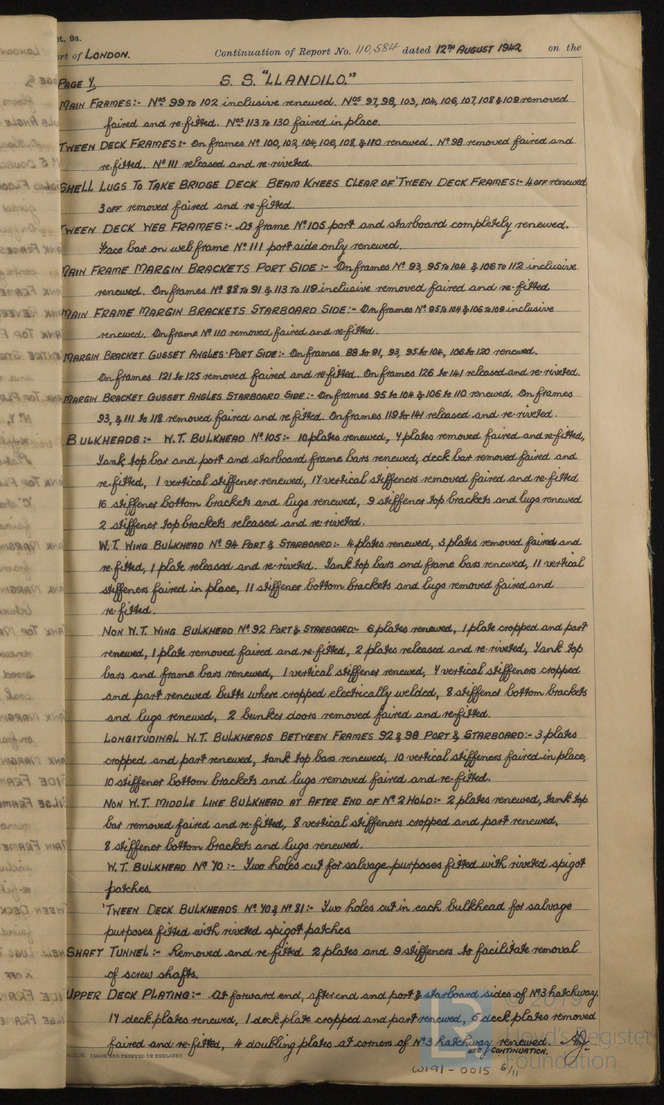 pt. 9a.
rt of LONDON. Continuation of Report No. 110,584 dated 12TH AUGUST 1942 on the
PAGE 4. S. S. "LLANDILO."
MAIN FRAMES:- Nos 99 to 102 inclusive renewed. Nos 97, 98, 103, 104, 106, 107, 108 & 109 removed
faired and re-fitted. Nos 113 to 130 faired in place.
TWEEN DECK FRAMES:- On frames No 100, 102, 104, 106, 108, & 110 renewed. No 98 removed faired and
re-fitted. No 111 released and re-riveted.
SHELL LUGS TO TAKE BRIDGE DECK BEAM KNEES CLEAR OF 'TWEEN DECK FRAMES:- 4 OFF renewed
3 OFF removed faired and re-fitted.
TWEEN DECK WEB FRAMES:- At frame No 105 port and starboard completely renewed.
Face bar on web frame No 111 port side only renewed.
MAIN FRAME MARGIN BRACKETS PORT SIDE:- On frames No 93, 95 to 104 & 106 to 112 inclusive
renewed. On frames No 88 to 91 & 113 to 119 inclusive removed faired and re-fitted
MAIN FRAME MARGIN BRACKETS STARBOARD SIDE:- On frames No 95 to 104 & 106 to 109 inclusive
renewed. On frame No 110 removed faired and re-fitted.
MARGIN BRACKET GUSSET ANGLES PORT SIDE:- On frames 88 to 91, 93, 95 to 104, 106 to 120 renewed.
On frames 121 to 125 removed faired and re-fitted. On frames 126 to 141 released and re-riveted.
MARGIN BRACKET GUSSET ANGLES STARBOARD SIDE:- On frames 95 to 104 & 106 to 110 renewed. On frames
93, & 111 to 118 removed faired and re fitted. On frames 119 to 141 released and re-riveted.
BULKHEADS:- W.T. BULKHEAD No 105:- 10 plates renewed, 4 plates removed faired and re-fitted,
Tank top bar and port and starboard frame bars renewed, deck bar removed faired and
re-fitted, 1 vertical stiffener renewed, 17 vertical stiffeners removed faired and re-fitted
16 stiffener bottom brackets and lugs renewed, 9 stiffener top brackets and lugs renewed
2 stiffener top brackets released and re-riveted.
W.T. WING BULKHEAD No 94 PORT & STARBOARD:- 4 plates renewed, 3 plates removed faired and
re-fitted, 1 plate released and re-riveted. Tank top bars and frame bars renewed, 11 vertical
stiffeners faired in place, 11 stiffener bottom brackets and lugs removed faired and
re-fitted.
NON W.T. WING BULKHEAD No 92 PORT & STARBOARD:- 6 plates renewed, 1 plate cropped and part
renewed, 1 plate removed faired and re-fitted, 2 plates released and re-riveted, Tank top
bars and frame bars renewed, 1 vertical stiffener renewed, 4 vertical stiffeners cropped
and part renewed butts where cropped electrically welded, 8 stiffener bottom brackets
and lugs renewed, 2 bunker doors removed faired and re-fitted.
LONGITUDINAL W.T. BULKHEADS BETWEEN FRAMES 92 & 98 PORT & STARBOARD:- 3 plates
cropped and part renewed, tank top bars renewed, 10 vertical stiffeners faired in place,
10 stiffener bottom brackets and lugs removed faired and re-fitted.
NON W.T. MIDDLE LINE BULKHEAD AT AFTER END OF No 2 HOLD:- 2 plates renewed, tank top
bar removed faired and re-fitted, 8 vertical stiffeners cropped and part renewed,
8 stiffener bottom brackets and lugs renewed.
W.T. BULKHEAD No 40:- Two holes cut for salvage purposes fitted with riveted spigot
patches.
'TWEEN DECK BULKHEADS No 40 & No 81:- Two holes cut in each bulkhead for salvage
purposes fitted with riveted spigot patches
SHAFT TUNNEL:- Removed and re-fitted 2 plates and 9 stiffeners to facilitate removal
of screw shafts.
UPPER DECK PLATING:- At forward end, after end and port & starboard sides of No 3 hatchway.
17 deck plates renewed, 1 deck plate cropped and part renewed, 6 deck plates removed
faired and re-fitted, 4 doubling plates at corners of No 3 hatchway renewed.
SEE CONTINUATION.
(MADE AND PRINTED IN ENGLAND)
W191-0015 6/11
© 2019
Lloyd's Register
Foundation